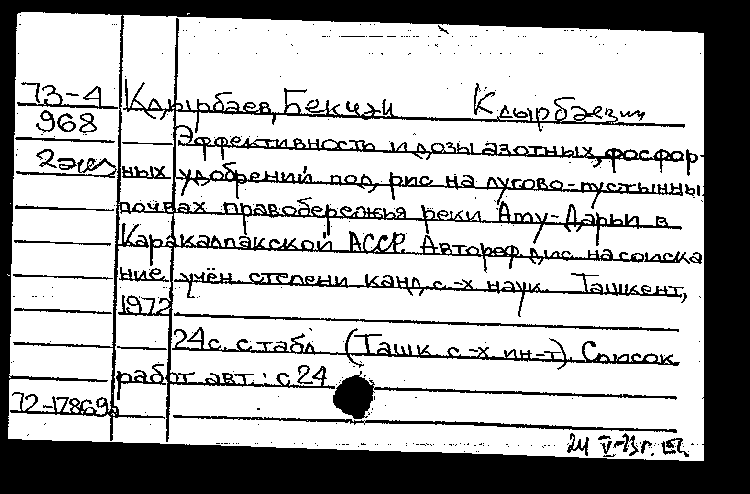 73-4 Кдырбаев, Бекчан
968 Эффективность и дозы азотных, фосфор-
2 экз ных удобрений под рис на лугово-пустынны
почвах правобережья реки Аму-Дарьи в
Каракалпакской АССР. Автореф. дис. на соиска
ние учён. степени канд. с.-х наук. Ташкент,
1972
24 с. с табл. (Ташк. с.-х ин-т). Список
работ авт.: с. 24
72-17869а
24 V-73г.